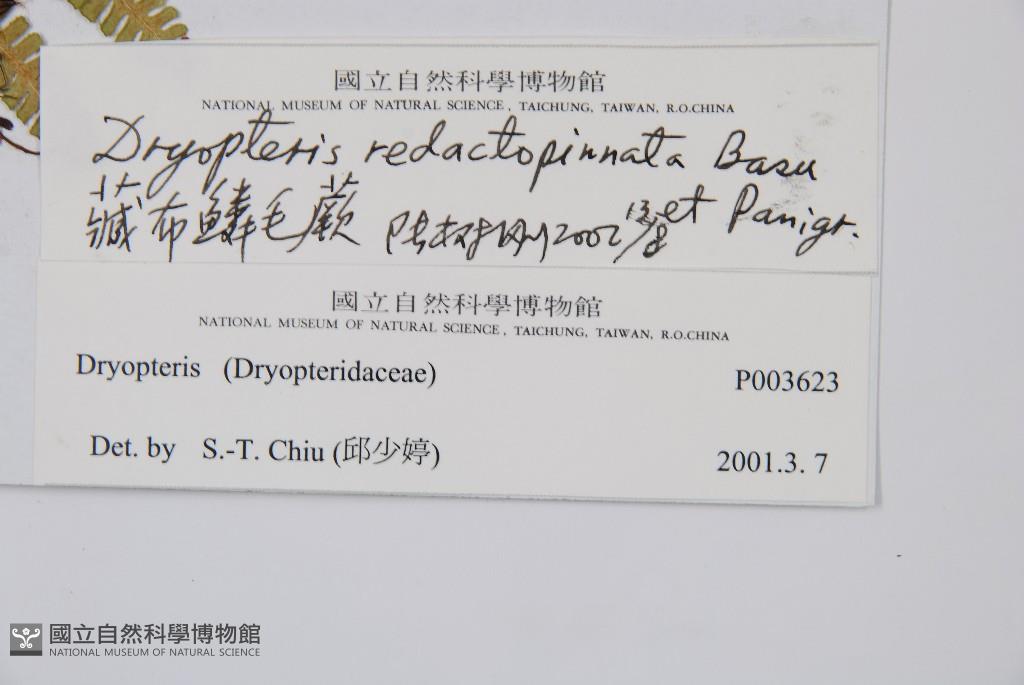 國立自然科學博物館
NATIONAL MUSEUM OF NATURAL SCIENCE, TAICHUNG, TAIWAN, R.O.CHINA
Dryopteris redactopinnata Basu
et Panigr.
藏布鱗毛蕨 2002
國立自然科學博物館
NATIONAL MUSEUM OF NATURAL SCIENCE, TAICHUNG, TAIWAN, R.O.CHINA
Dryopteris (Dryopteridaceae) P003623
Det. by S.-T. Chiu (邱少婷) 2001.3. 7
國立自然科學博物館
NATIONAL MUSEUM OF NATURAL SCIENCE